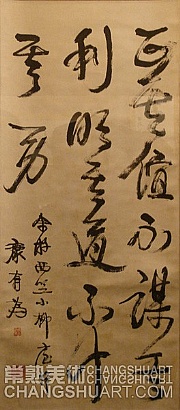 正其誼不謀其
利明其道不計
其功
康有為
常熟美術 CHANGSHUART
CHANGSHUART.COM